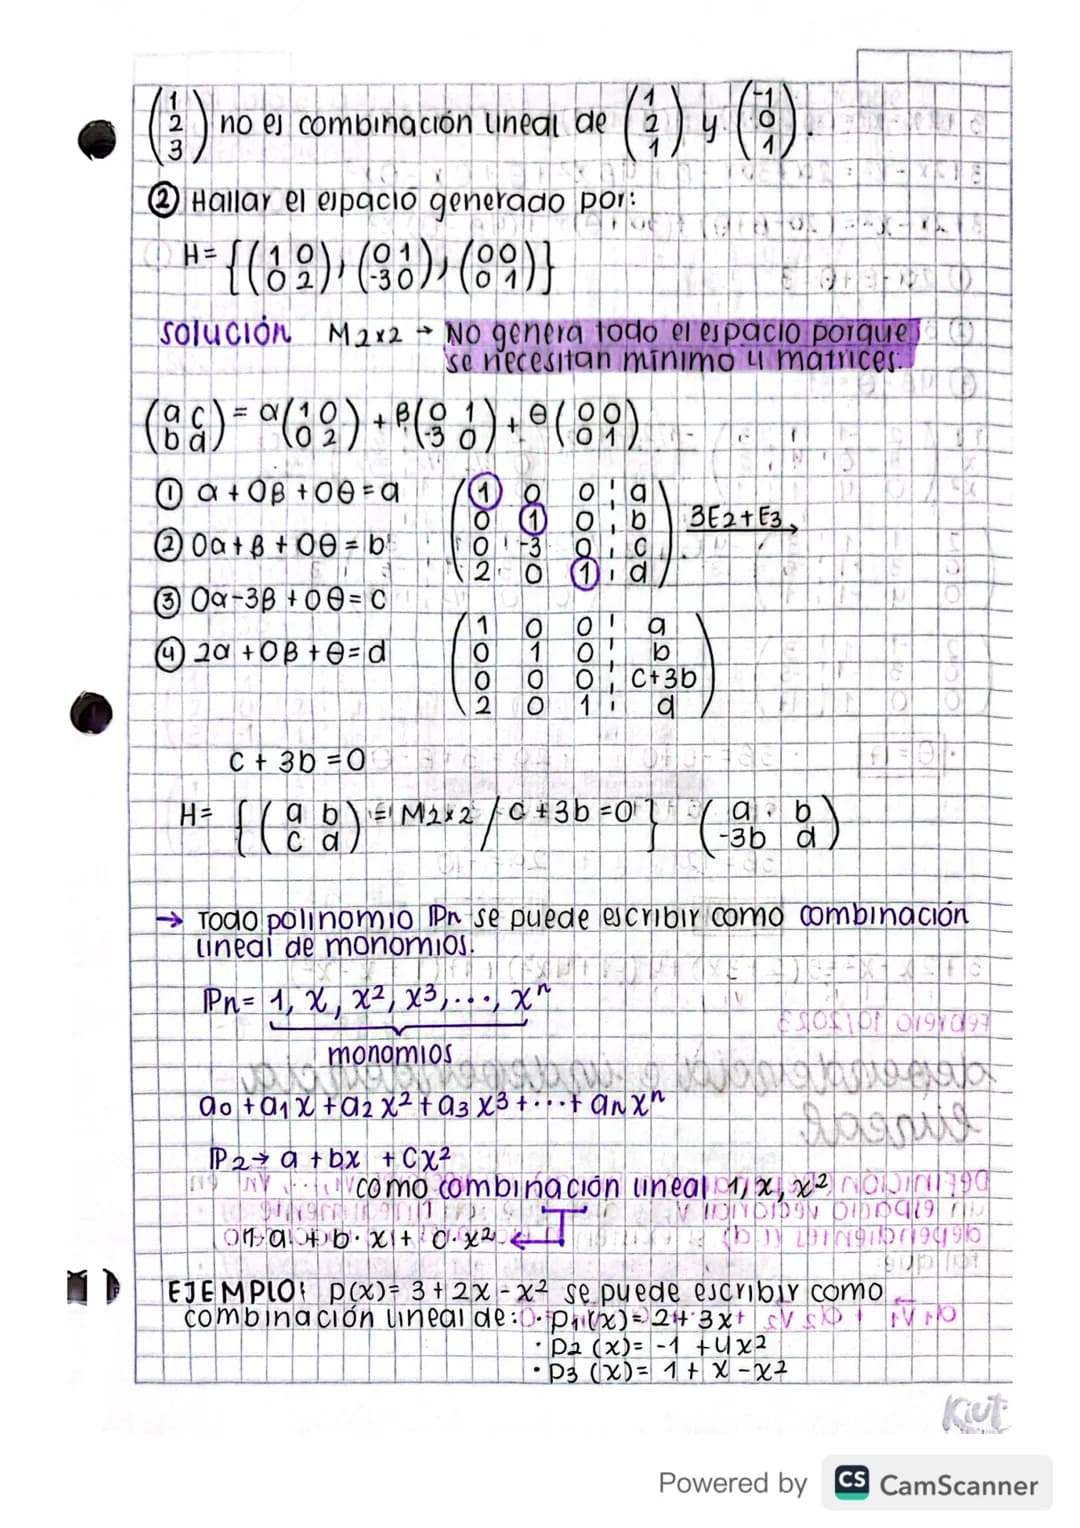 (1 2 3) no es combinación lineal de (1 2 1) y (-1 0 1).
② Hallar el espacio generado por:
H= {(1 0 0 2), (0 1 -3 0), (0 0 0 1)}
solución M2x2 → No genera todo el espacio porque
se necesitan mínimo 4 matrices.
(a c b d) = α(1 0 0 2) + β(0 1 -3 0) + θ(0 0 0 1)
① α + 0β + 0θ = a
② 0α + β + 0θ = b
③ 0α - 3β + 0θ = c
④ 2α + 0β + θ = d
1 0 0 ¦ a
0 1 0 ¦ b
0 -3 0 ¦ c
2 0 1 ¦ d
3E2+E3→
1 0 0 ¦ a
0 1 0 ¦ b
0 0 0 ¦ c+3b
2 0 1 ¦ d
c + 3b = 0
H= {(a b c d) ∈ M2x2 / c + 3b = 0} (a b -3b d)
→ Todo polinomio ℙn se puede escribir como combinación
lineal de monomios.
ℙn= 1, x, x², x³, ..., xⁿ
monomios
a0 + a1x + a2x² + a3x³ + ... + anxⁿ
ℙ2→ a + bx + cx²
como combinación lineal 1, x, x²
1·a + b·x + c·x² ←
EJEMPLO: p(x)= 3 + 2x - x² se puede escribir como
combinación lineal de: · p1(x)= 2 + 3x
· p2 (x)= -1 + 4x²
· p3 (x)= 1 + x - x²
Kiut
Powered by CS CamScanner